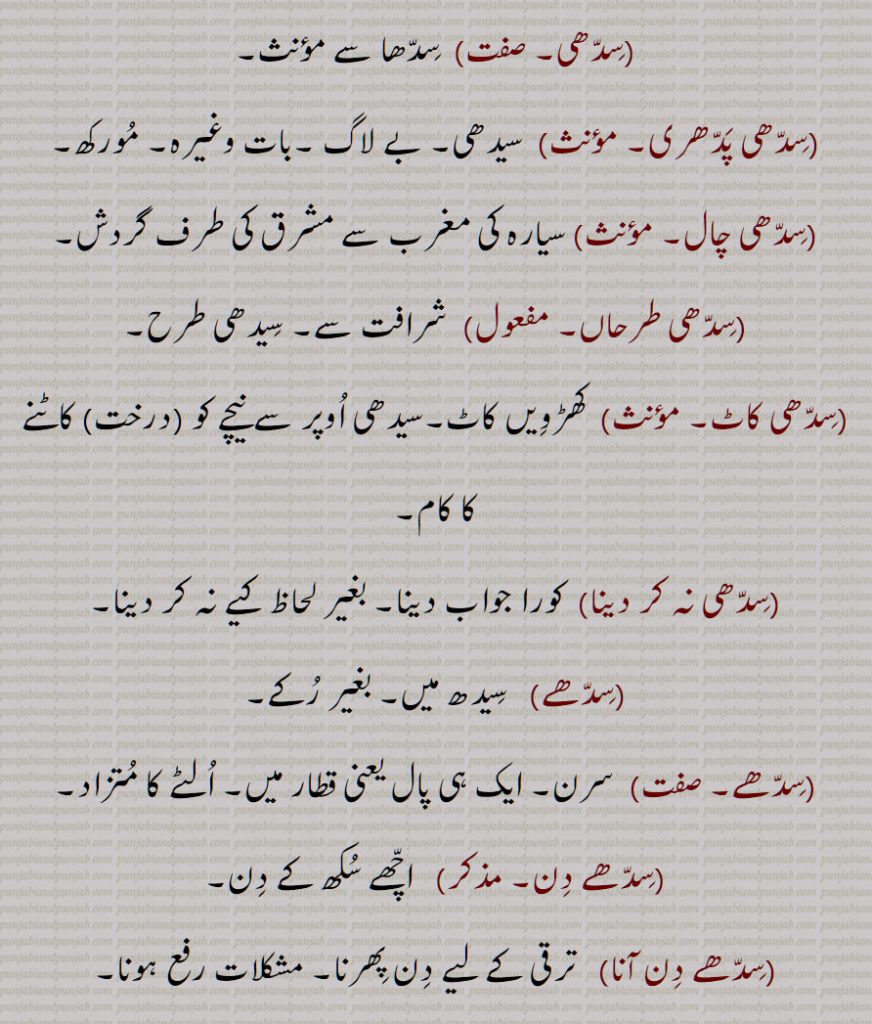 (سِدّھی۔ صفت) سِدّھا سے مؤنث۔
(سِدّھی پَدّھری۔ مؤنث) سیدھی۔ بے لاگ ۔بات وغیرہ۔ مُورکھ۔
(سِدّھی چال۔ مؤنث) سیارہ کی مغرب سے مشرق کی طرف گردش۔
(سِدّھی طرحاں۔ مفعول) شرافت سے۔ سِیدھی طرح۔
(سِدّھی کاٹ۔ مؤنث) کھڑوِیں کاٹ۔سیدھی اُوپر سے نیچے کو (درخت) کاٹنے
کا کام۔
(سِدّھی نہ کر دینا) کورا جواب دینا۔ بغیر لحاظ کیے نہ کر دینا۔
(سِدّھے) سِیدھ میں۔ بغیر رُکے۔
(سِدّھے۔ صفت) سرن۔ ایک ہی پال یعنی قطار میں۔ اُلٹے کا مُتزاد۔
(سِدّھے دِن۔ مذکر) اچّھے سُکھ کے دِن۔
(سِدّھے دِن آنا) ترقی کے لیے دِن پِھرنا۔ مشکلات رفع ہونا۔